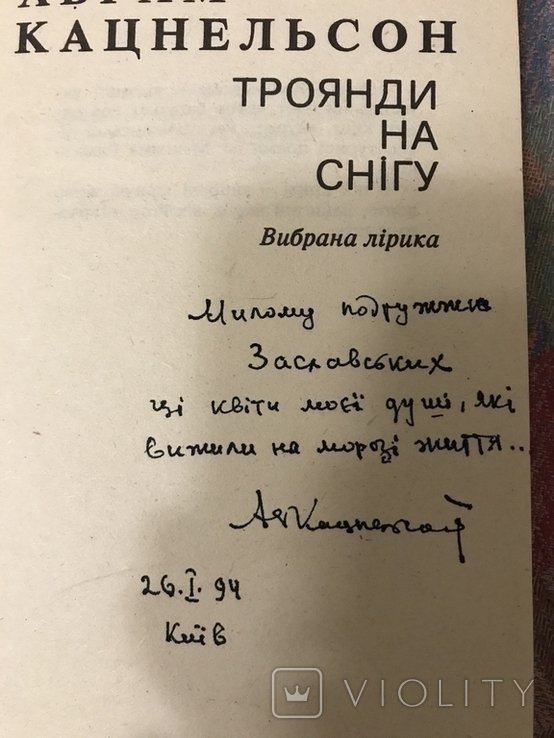 АВРАМ
КАЦНЕЛЬСОН
ТРОЯНДИ
НА
СНІГУ
Вибрана лірика
Милому подружжю
Заславських
ці квіти моєї душі, які
вижили на морозі життя..
АвКацнельсон
26.I.94
Київ
VIOLITY